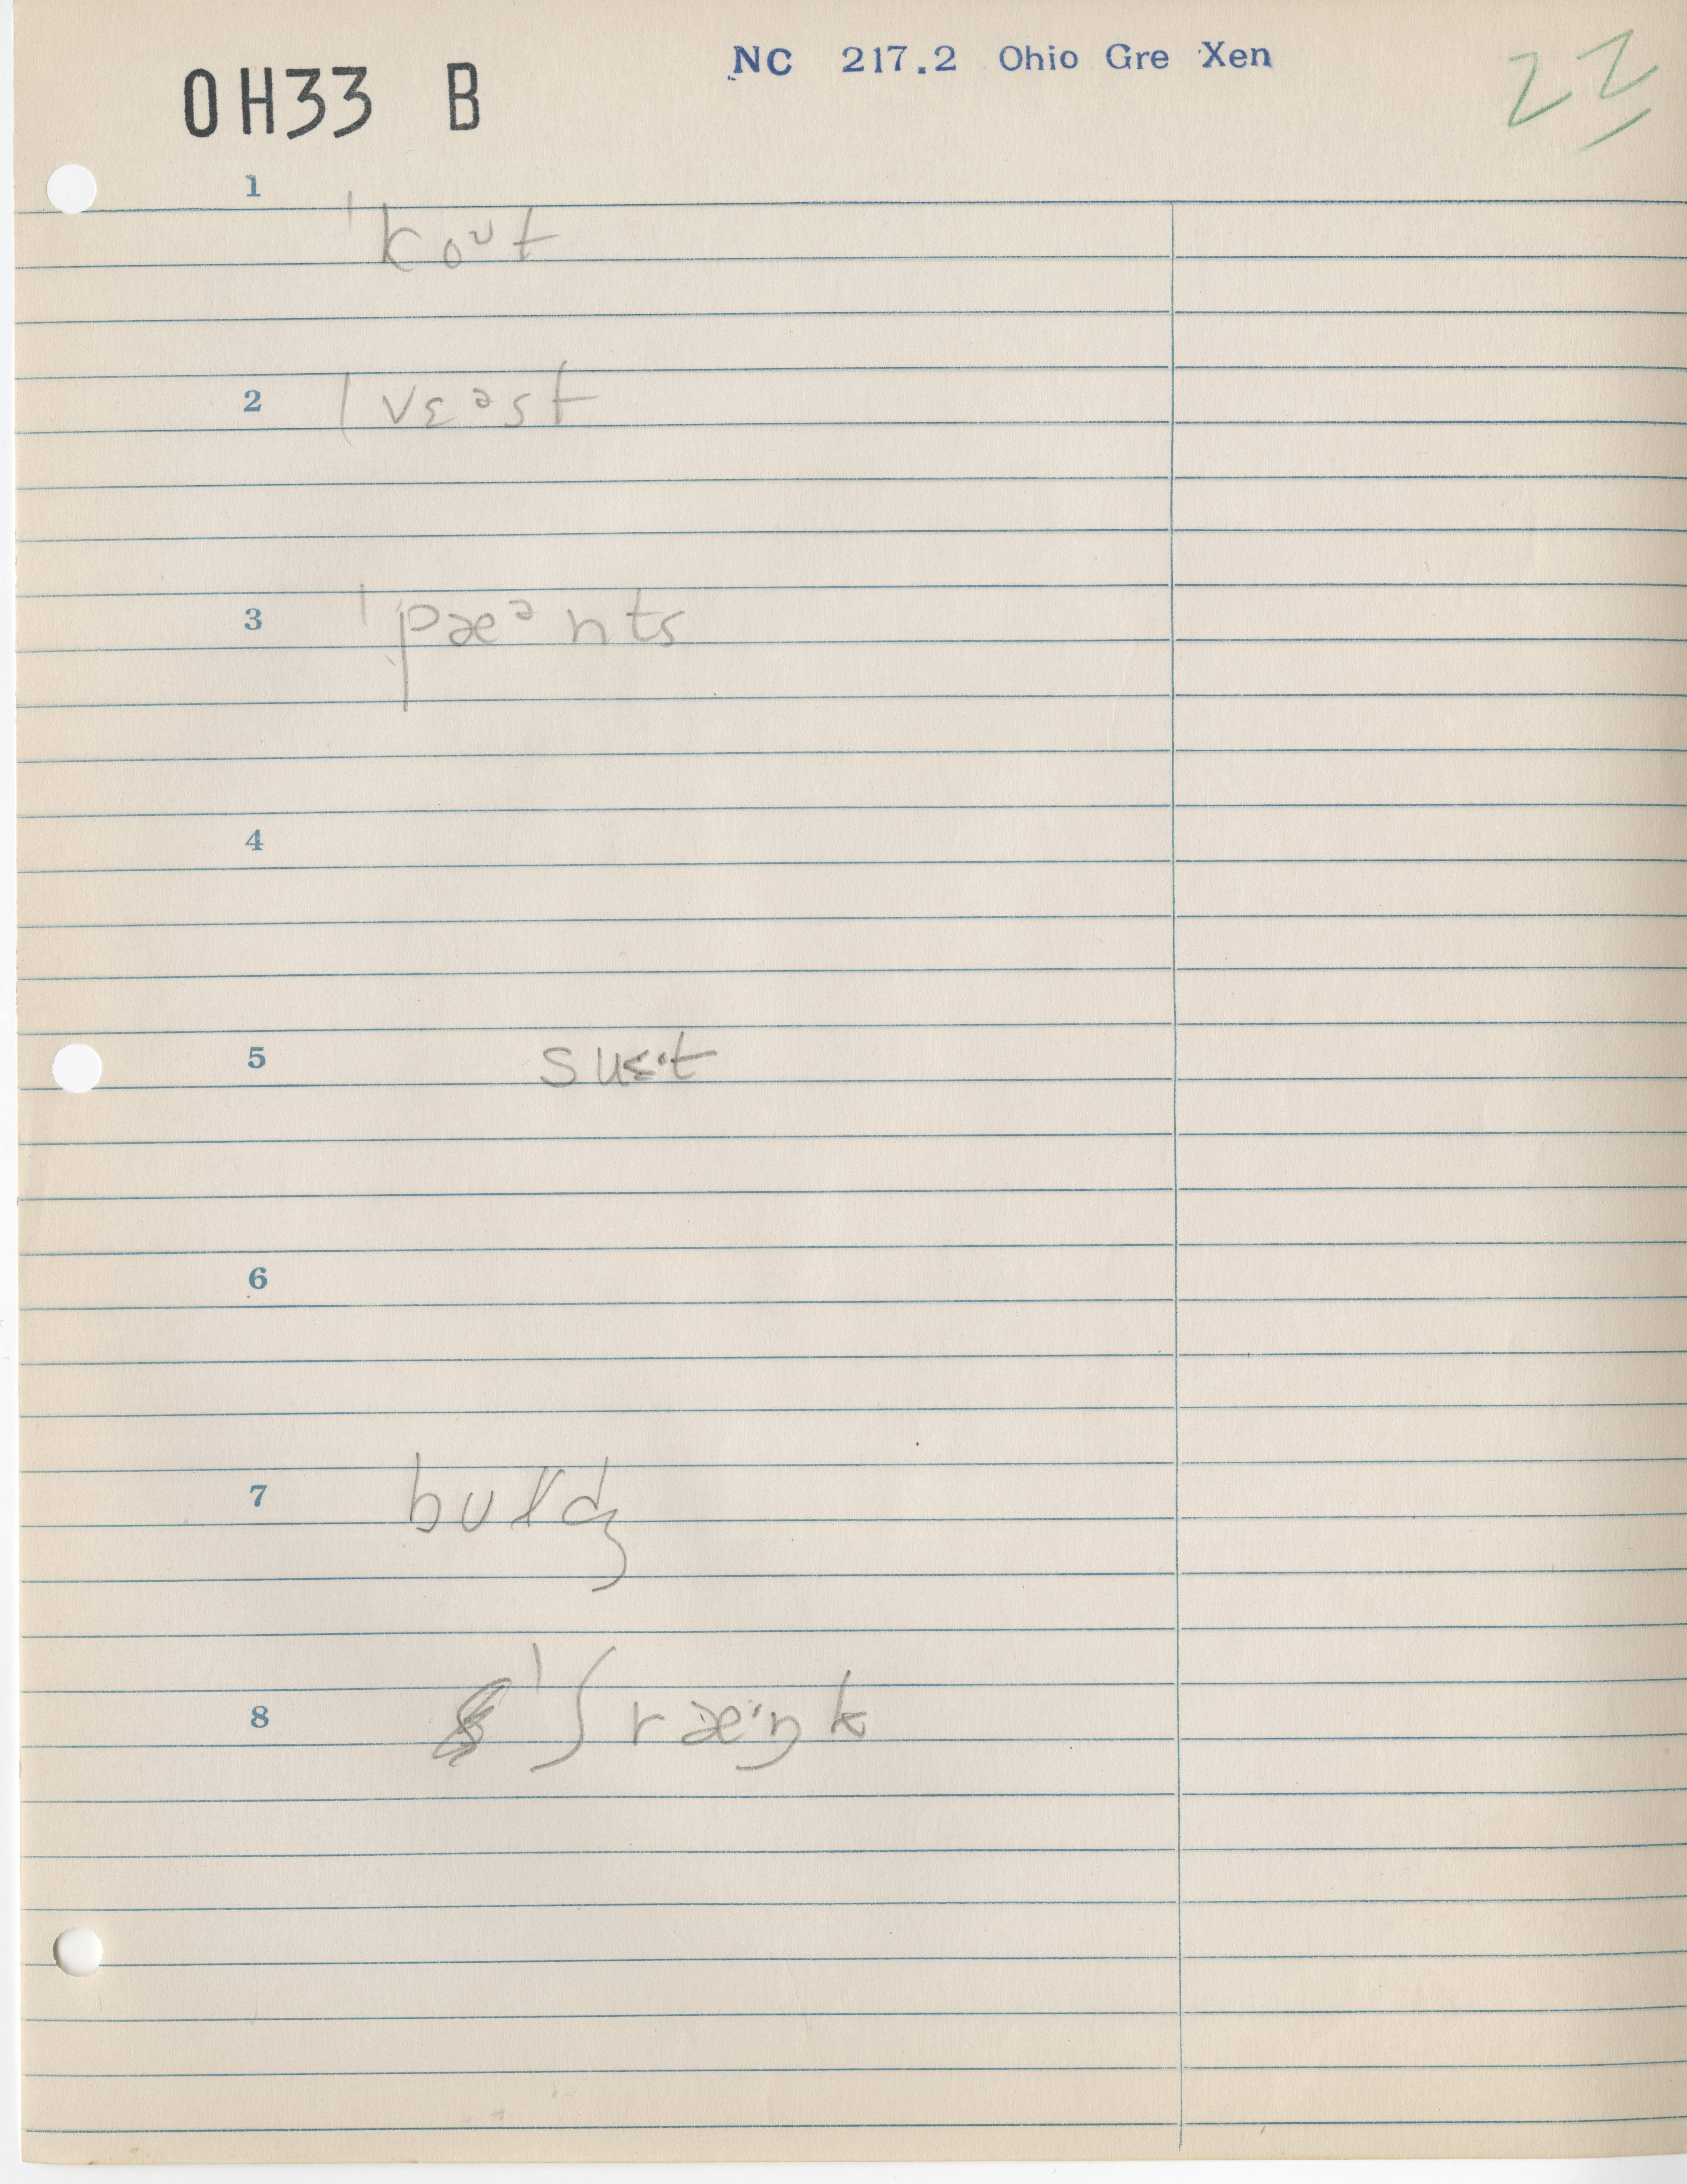 OH33 B
NC 217.2 Ohio Gre Xen
22
1
ˈkoᶷt
2 ˈvɛᵊst
3 ˈpæᵊnts
4
5 suɛ·t
6
7 bʊldʒ
8 ˈʃræ·ŋk